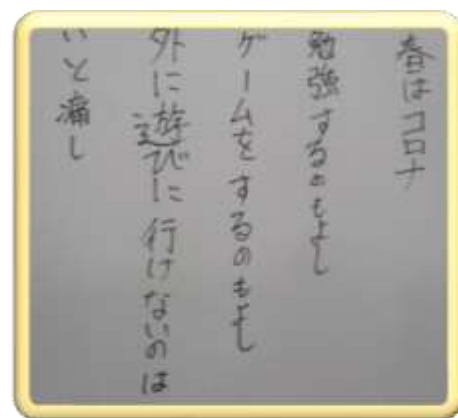 春はコロナ
勉強するのもよし
ゲームをするのもよし
外に遊びに行けないのは
いと痛し